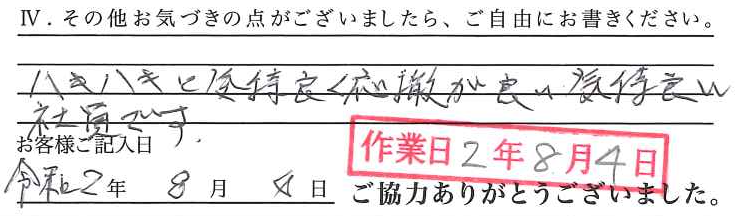 Ⅳ．その他お気づきの点がございましたら、ご自由にお書きください。
ハキハキと気持良く応撤が良い気持良い
社員です.
お客様ご記入日
作業日2年8月4日
令和2年 8月 4日 ご協力ありがとうございました。